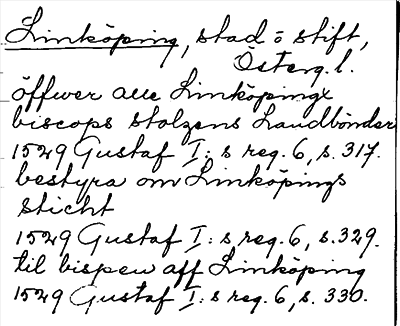 Linköping, stad o stift,
Österg. l.
öffwer alle Linköpingx
biscops stolzens Landbönder
1529 Gustaf I:s reg. 6, s. 317.
bestyra om Linköpings
sticht
1529 Gustaf I:s reg. 6, s. 329.
til bispen aff Linköping
1529 Gustaf I:s reg. 6, s. 330.